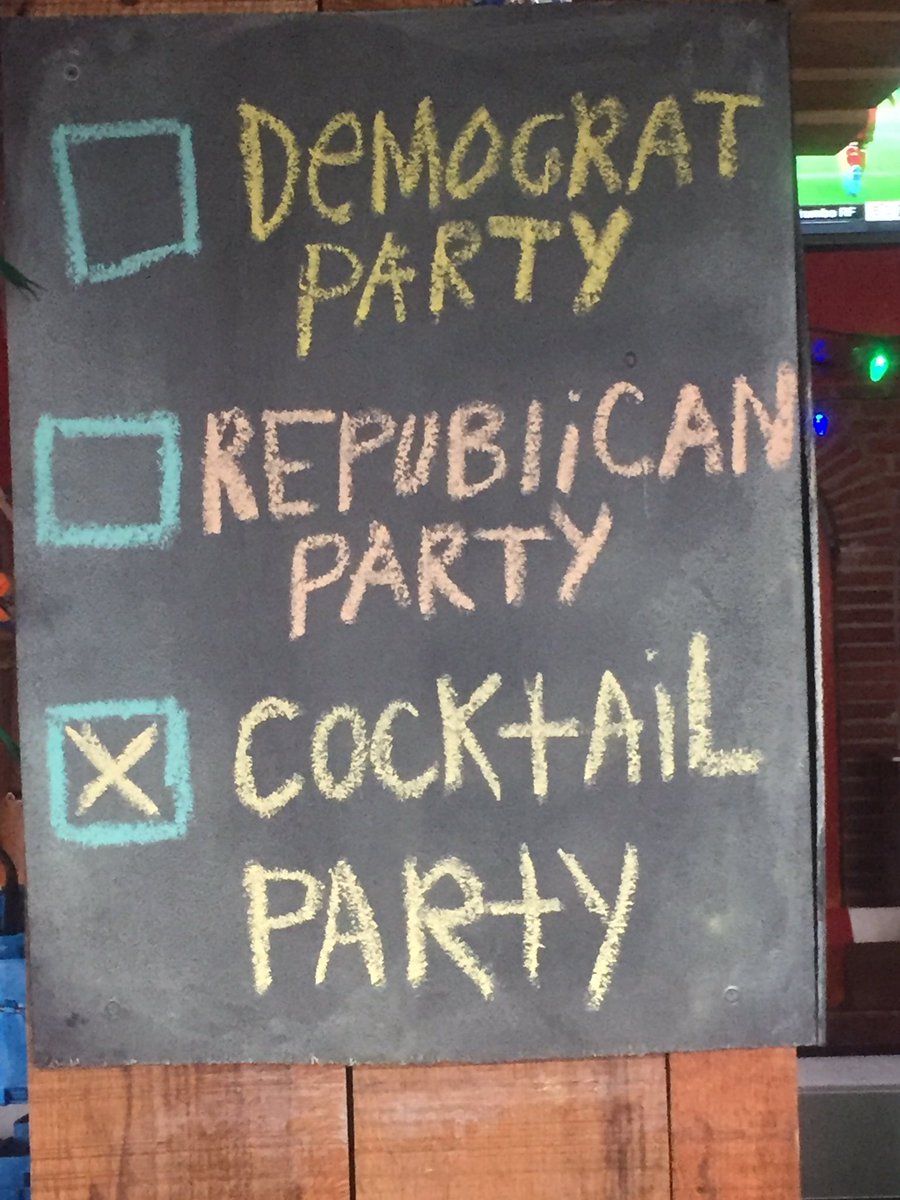 DeMOCRAT
PARTY
REPUBliCAN
PARTY
X COCKtAiL
PARtY